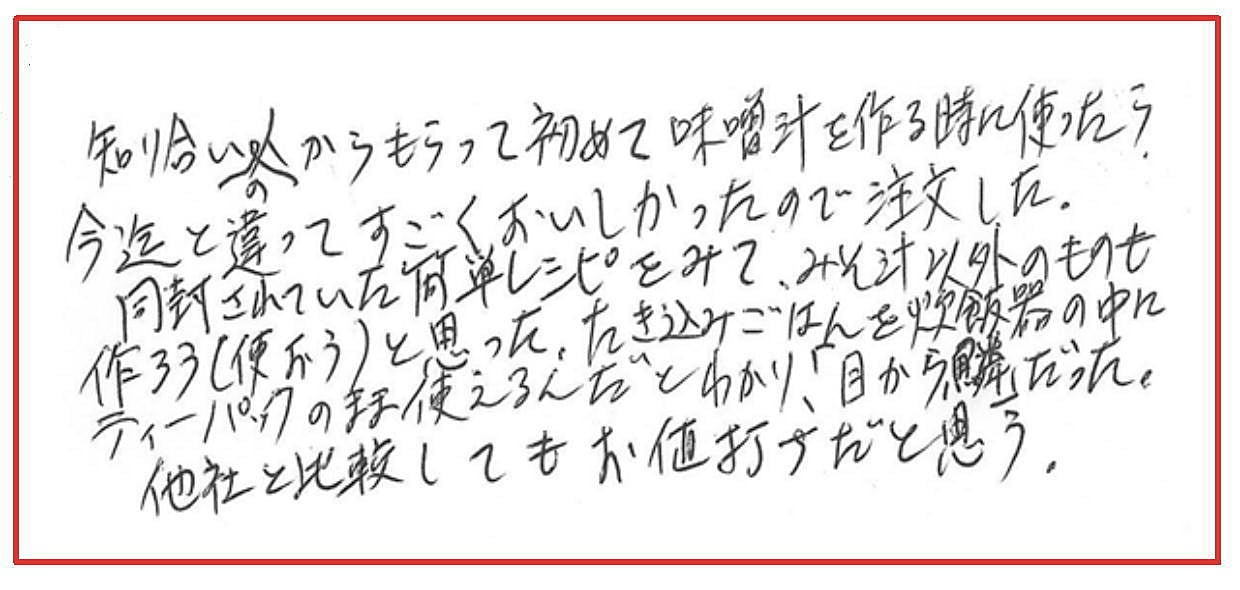 知り合いの人からもらって初めて味噌汁を作る時に使ったら、
今迄と違ってすごくおいしかったので注文した。
同封されていた簡単レシピをみて、みそ汁以外のものも
作ろう(使おう)と思った。たき込みごはんを炊飯器の中に
ティーパックのまま使えるんだとわかり、「目から鱗」だった。
他社と比較してもお値打ちだと思う。